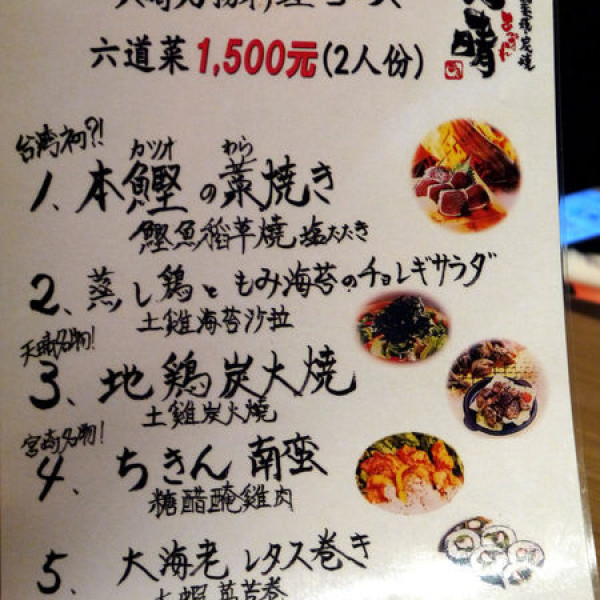 六道菜 1,500元(2人份)
晴
台湾初?!
カツオ わら
1、本鰹の藁焼き
鰹魚稻草燒 塩たたき
2、蒸し鶏ともみ海苔のチョレギサラダ
土雞海苔沙拉
天晴名物!
3、地鶏炭火焼
土雞炭火燒
宮崎名物!
4、ちきん南蛮
糖醋醃雞肉
5、大海老レタス巻き
大蝦萵苣卷